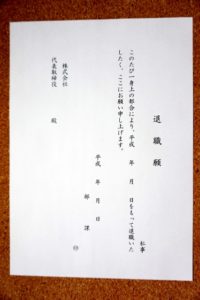 退職願
私事
このたび一身上の都合により、平成　年　月　日をもって退職いた
したく、ここにお願い申し上げます。
平成　年　月　日
部　課
㊞
株式会社
代表取締役　殿